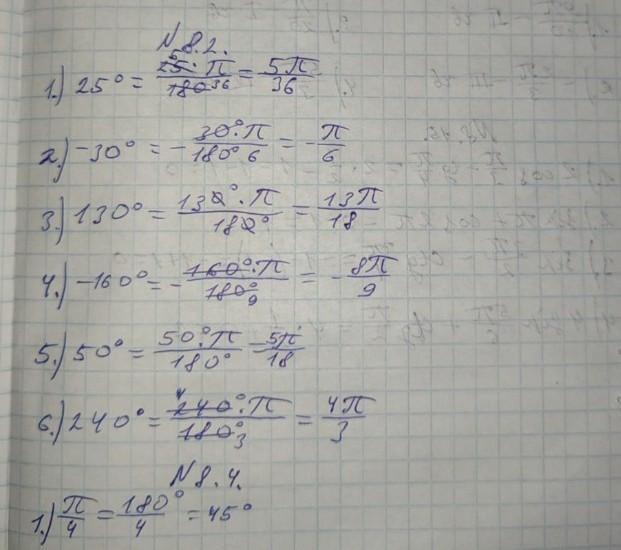 N 8.2.
1.) 25° = 25°·π/180 36 = 5π/36
2.) -30° = - 30°·π/180° 6 = - π/6
3.) 130° = 130°·π/180° = 13π/18
4.) -160° = - 160°·π/180° 9 = - 8π/9
5.) 50° = 50°·π/180° = 5π/18
6.) 240° = 4 240°·π/180° 3 = 4π/3
N 8.4.
1.) π/4 = 180°/4 = 45°